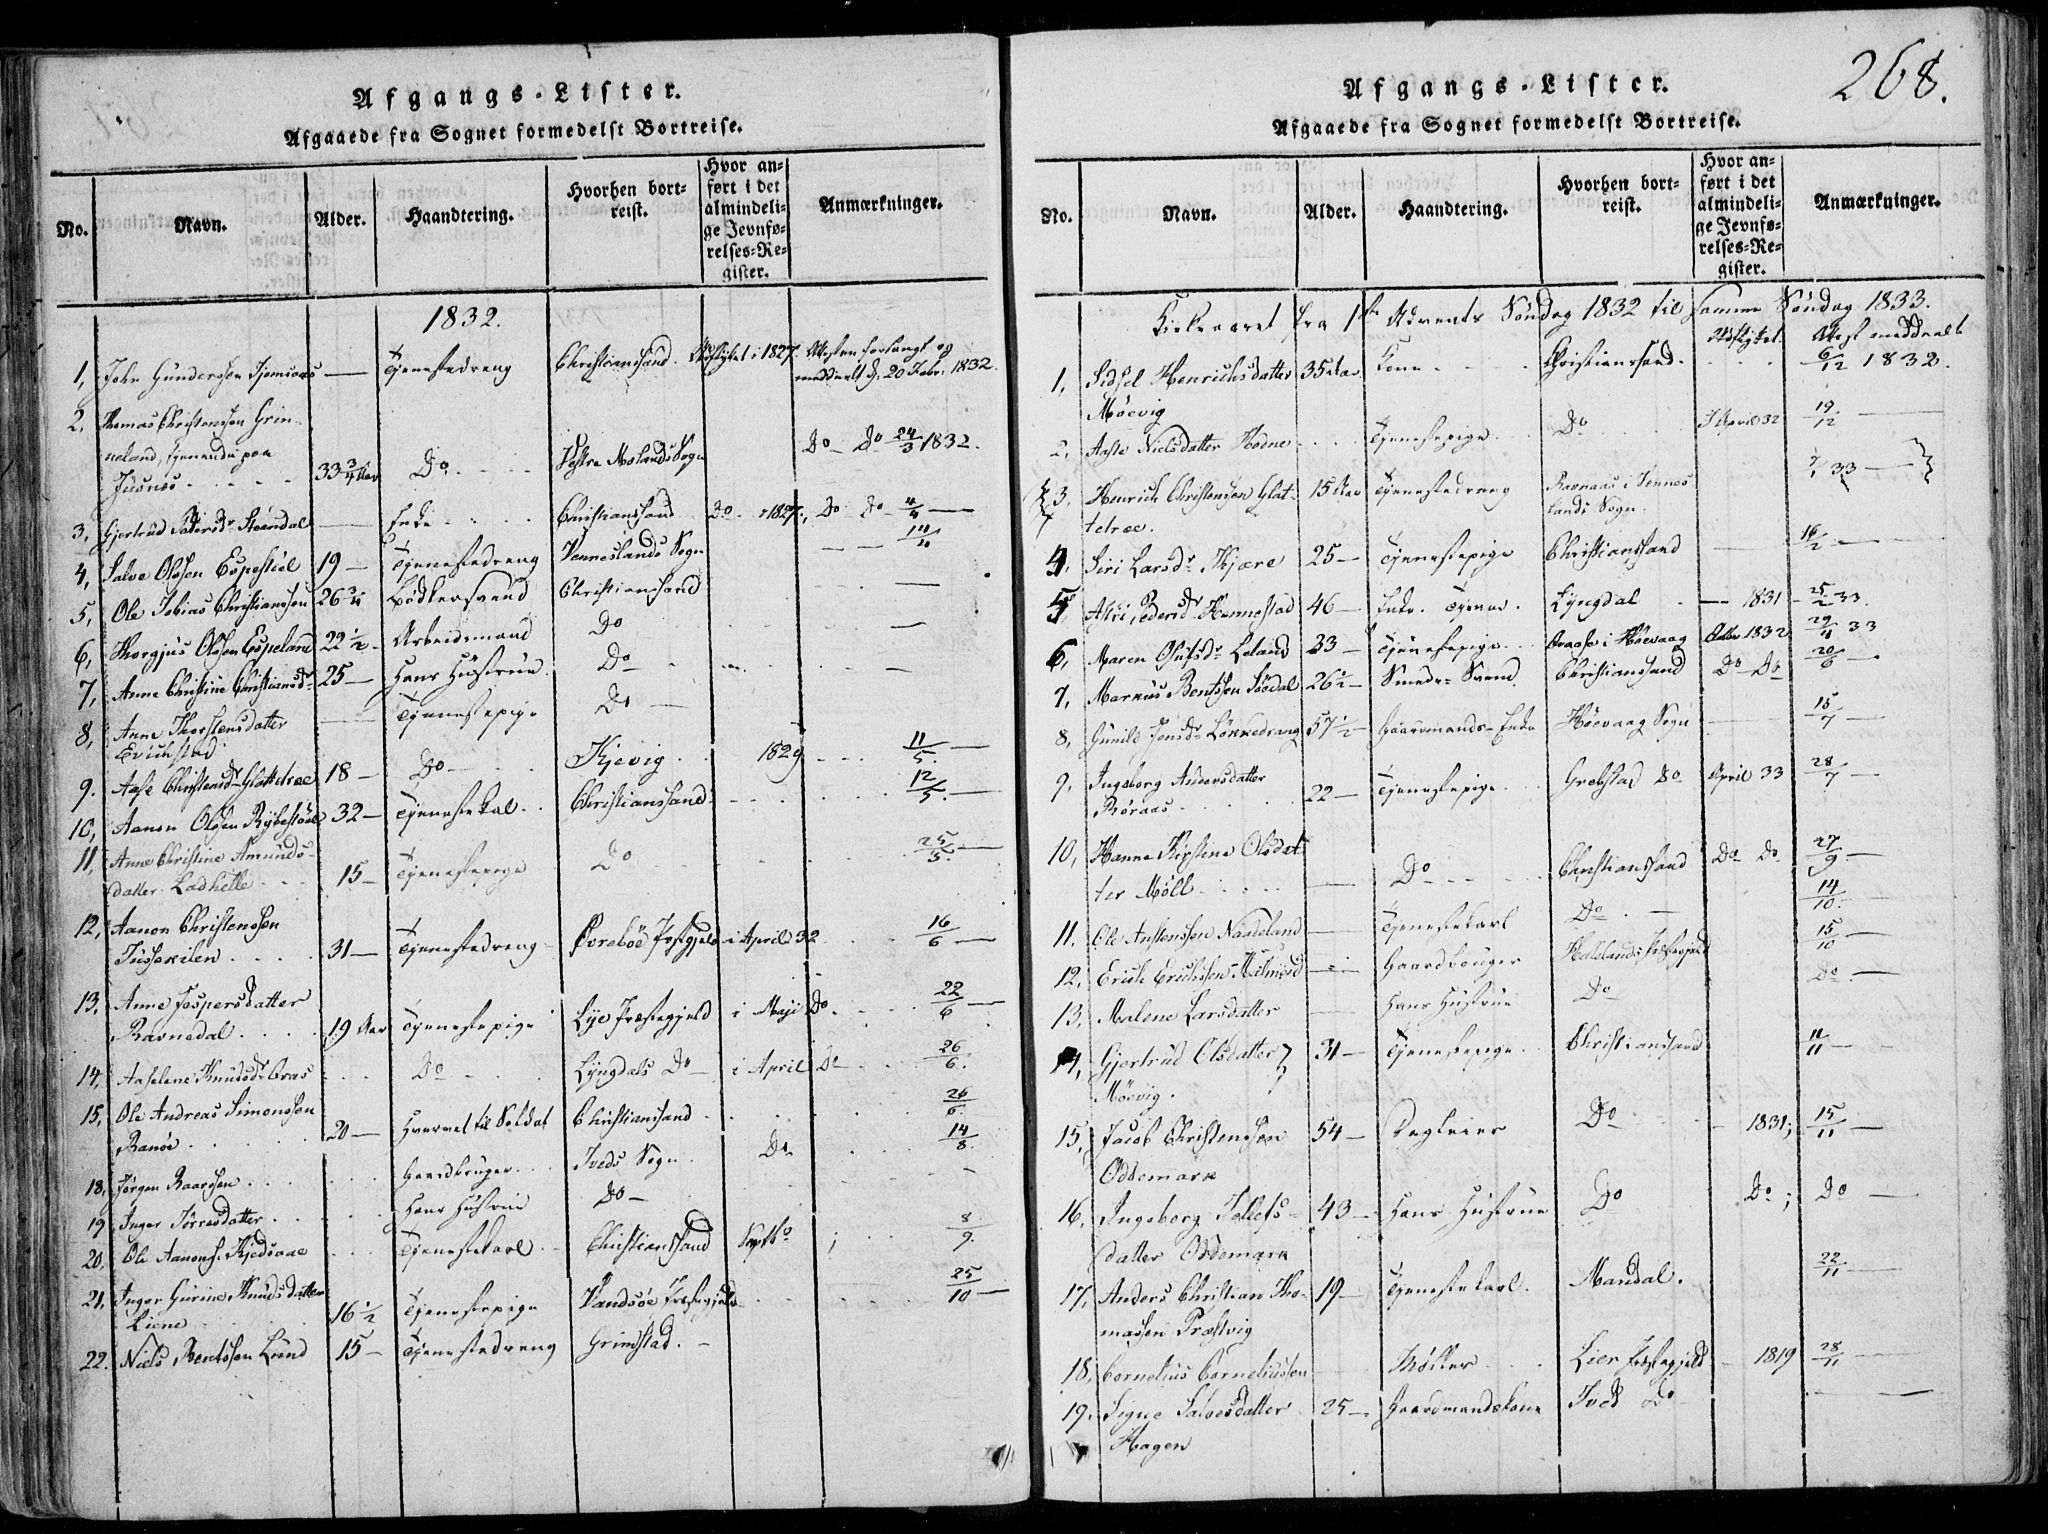 Afgangs-Lister.
Afgaaede fra Sognet formedelst Bortreise.
No. Navn. Alder. Haandtering. Hvorhen bortreist. Hvor anført i det almindelige Jevnførelses-Register. Anmærkninger.
1832.
1, John Gundersen — Tjenestedreng Christianssand. i 1827. Attesten forlangt og
meddeelt d. 20 Febr. 1832.
2. Thomas Christensen Grin-
neland, tjenende paa
Jusnes 33 3/4 Aar Do Vestre Molands Sogn Do Do 24/3 1832.
3, Gjertrud Pedersdr Steendal — Enke Christianssand Do 1827, Do Do 4/4 —
4, Salve Olssen Espestøel 19 — Tjenestedreng Vennesland Sogn — —
5, Ole Tobias Christianssen 26 3/4 Bødkersvend Christianssand —
6, Thorgius Olssen Espeland 22 1/2 Arbeidsmand Do —
7, Anne Christine Christiansdr 25 — Hans Hustrue Do —
8, Anne Thorstensdatter
Erichstad — Tjenestepige Do —
9. Aase Christensdr Glattetræe 18 — Do — Kjevig 1829 11/5. —
10, Aanon Olssen Rybestøel 32 — Tjenestekal Christianssand 12/5. —
11, Anne Christine Amunds-
datter Ladhelle 15 — Tjenestepige Do 25/5. —
12, Aanon Christenssen
Tusskilen 31 — Tjenestedreng Øvrebøe Præstgjeld i April 32 16/6 —
13, Anne Jespersdatter
Ravnedal 19 Aar Tjenestepige Lye Præstegjeld i Maji Do 22/6 —
14, Aaselene Knudsdr Aas Do Lyngdals Do i April Do 26/6.
15, Ole Andreas Simonssen
Ranøe 20 — Hvervet til Soldat Christianssand 26/6.
18, Jørgen Kaarssen Gaardbruger Tveds Sogn Do 14/8.
19 Inger Torresdatter Hans Hustrue Do —
20, Ole Aanons. Kjedsaae Tjenestekarl Christianssand Septbr 8/9.
21, Inger Gurine Knudsdatter
Liene 16 1/2 Tjenestepige Vandsøe Præstegjeld 25/10 —
22. Niels Bentssen Lund 15 — Tjenestedreng Grimstad. —
268.
Afgangs-Lister.
Afgaaede fra Sognet formedelst Bortreise.
No. Navn. Alder. Haandtering. Hvorhen bortreist. Hvor anført i det almindelige Jevnførelses-Register. Anmærkninger.
Kirkeaaret fra 1ste Advents Søndag 1832 til samme Søndag 1833.
1, Sidsel Henrichsdatter 35 Aar Kone Christianssand. Udflyttet. Attest meddeelt 6/12 1832.
Møevig
2, Aase Nielsdatter Hodne Tjenestepige Do I April 32 19/12 —
3, Henrich Christenssen Glat- 15 Aar Tjenestedreng Ravnaas i Vennes- 7/1 33 —
tetræe. lands Sogn.
4, Siri Larsdr Kjære 25 — Tjenestepige Christianssand — 16/2 —
5, Alvi Pedersdr Hannestad 46 — Enke. Tjener. Lyngdal — 1831 — 25/2 33.
6, Maren Olufsdr Leland 33 — Tjenestepige Aaase i Høevaag Octbr 1832 29/4 33
7, Marcus Bentssen Søedal 26 1/2 — Smede-Svend Christianssand Do Do 20/6 —
8, Gunild Jensdr Løkkedrang 57 1/2 — Gaardmands-Enke Høevaag Sogn — 15/7 —
9, Ingeborg Andersdatter
Røraas 22 — Tjenestepige Grebstad Do April 33 28/7 —
10, Hanne Kirstine Olsdat-
ter Møll — Do Christianssand Do Do 27/9 —
11. Ole Anstenssen Naadeland — Tjenestekarl Do — 14/10. —
12, Erich Erichssen — Gaardbruger Halelands Præstegjeld 15/10 —
13, Malene Larsdatter — Hans Hustrue Do Do —
14, Gjertrud Olsdatter 31 — Tjenestepige Christianssand 11/11 —
Møevig.
15, Jacob Christenssen 54 — Dagleier Do 1831; 15/11 —
Oddemark
16, Ingeborg Tellefs- 43 — Hans Hustrue Do Do; Do —
datter Oddemark
17, Anders Christian Tho- 19 — Tjenestekarl. Mandal. 22/11 —
massen Præstvig
18, Cornelius Corneliussen — Møller Lier Præstegjeld — 1819 28/11 —
19. Signe Salvesdatter 25 — Gaardmandskone Tved Do — —
Hagen